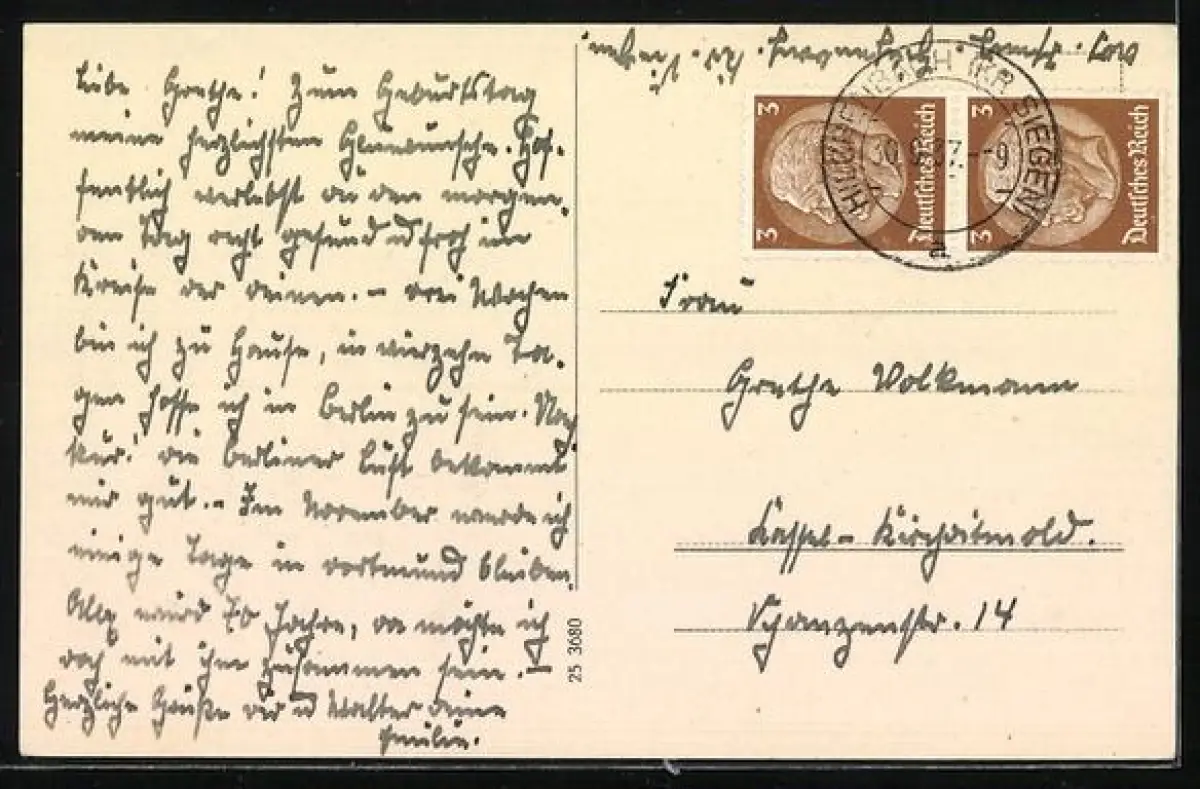 Liebe Grethe! Zum Geburtstag
meine herzlichsten Glückwünsche. Hof-
fentlich verlebst du den morgen-
den Tag recht gesund u froh im
Kreise der deinen. – drei Wochen
bin ich zu Hause, in vierzehn Ta-
gen hoffe ich in Berlin zu sein.
die Berliner Luft bekommt
mir gut. – Im November werde ich
einige Tage in Dortmund bleiben.
wird 70 Jahre, da möchte ich
doch mit ihm zusammen sein. –
Herzliche Grüße dir u Walter deine
Emilie.
25 3680
Deutsches Reich
3 3
Deutsches Reich
3 3
SIEGEN
Frau
Grethe Volkmann
Kassel – Kirchditmold.
Schanzenstr. 14